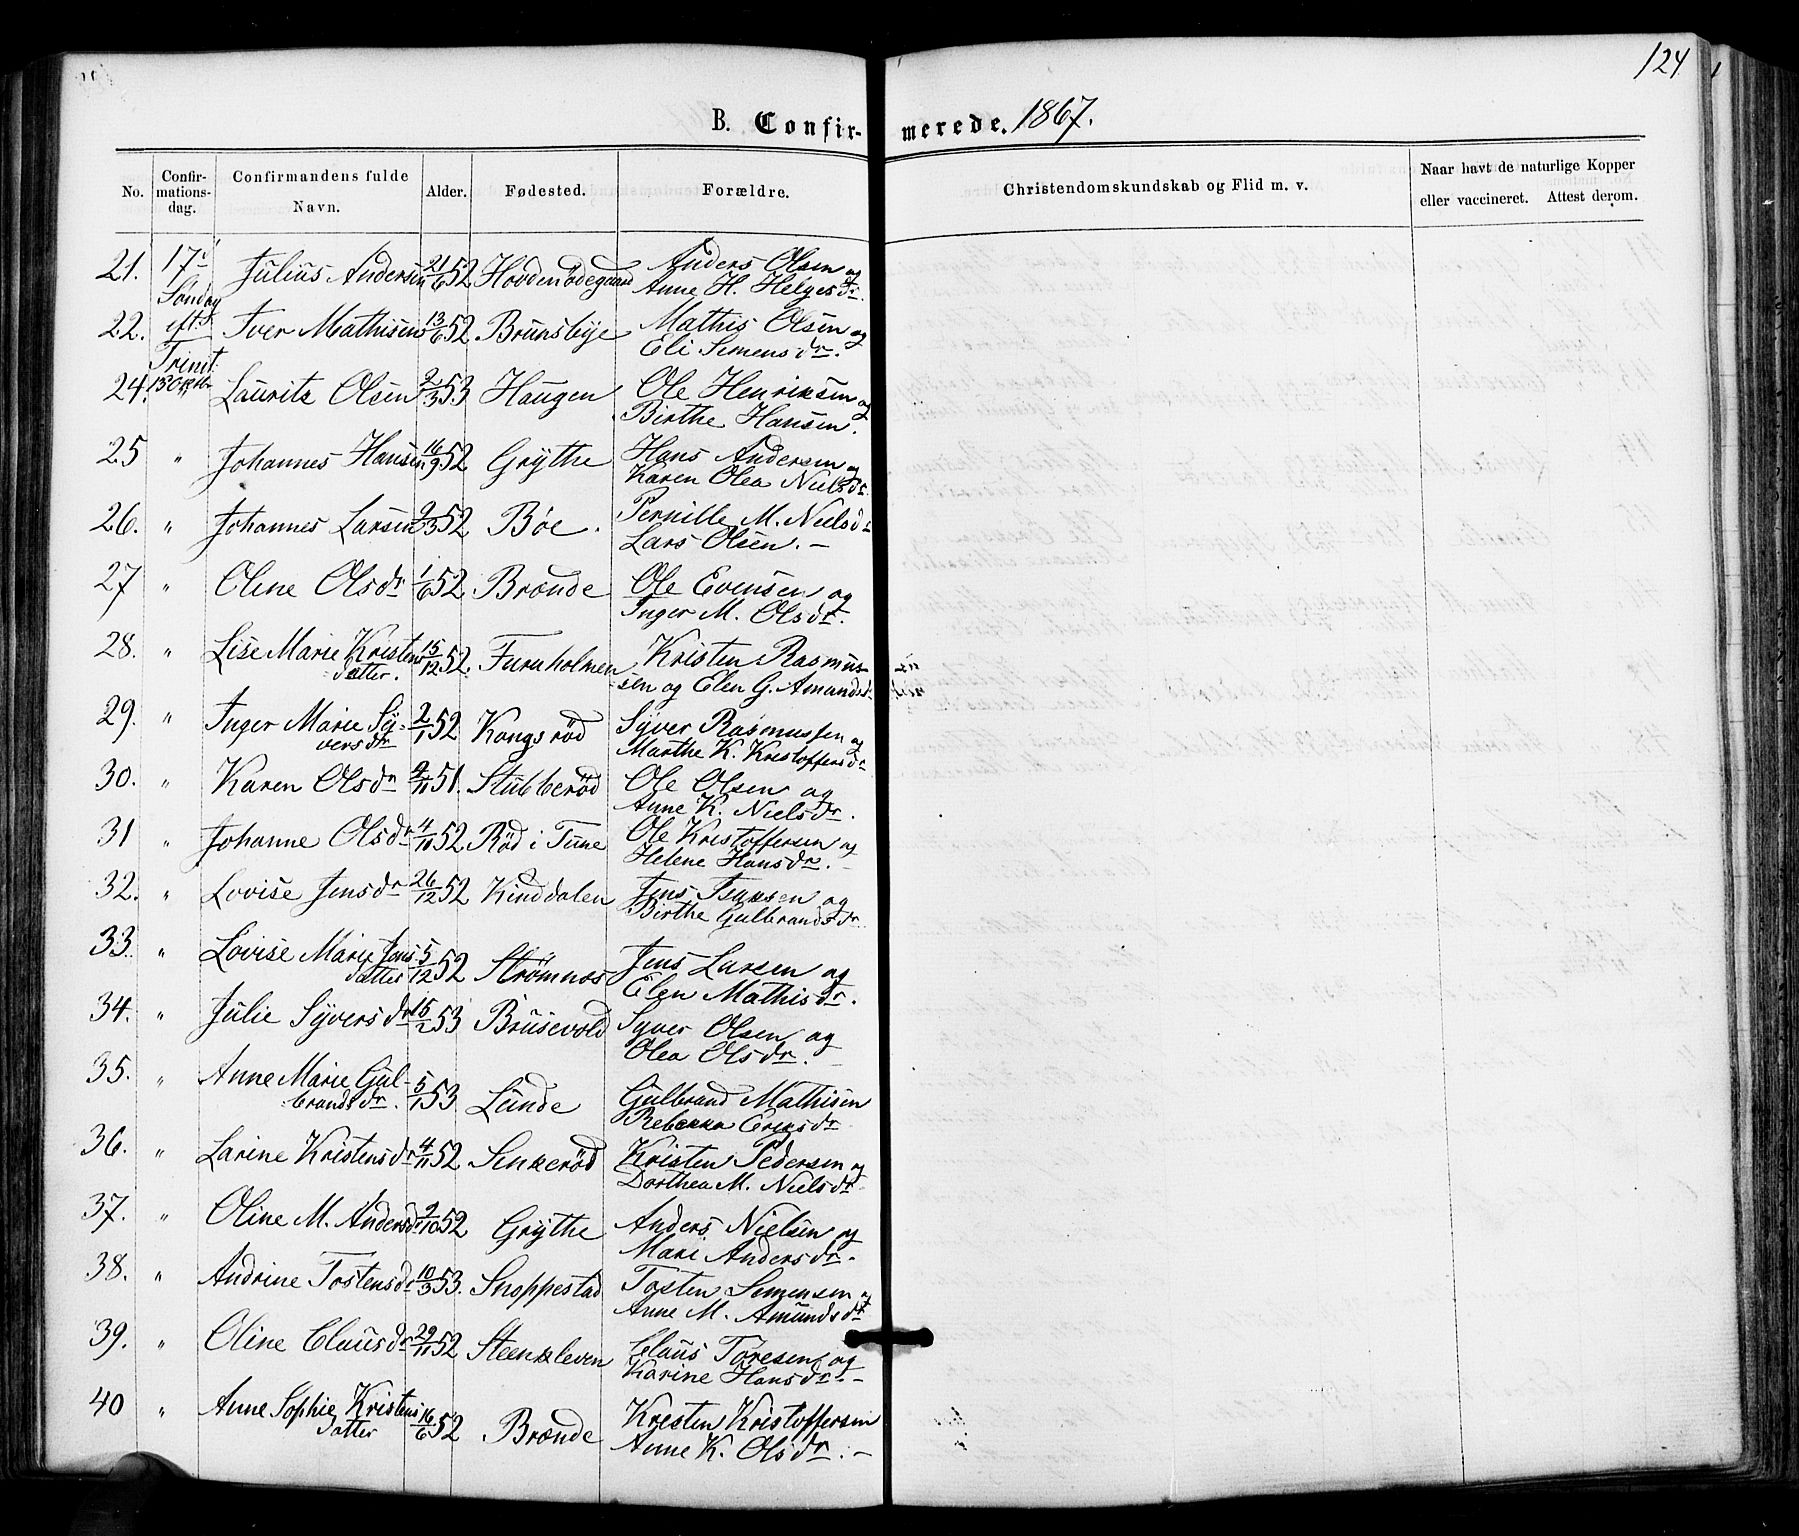 124
B. Confir-merede. 1867.
No. Confir-mations-dag. Confirmandens fulde Navn. Alder. Fødested. Forældre. Christendomskundskab og Flid m. v. Naar havt de naturlige Kopper eller vaccineret. Attest derom.
21. 17de Søndag Julius Andersen 21/6 52 Hovdenødegaard Anders Olsen og
Anne H. Helgesdr
22. eft. Trinit. Iver Mathisens 13/6 52 Brunsbye Mathis Olsen og
Eli Simensdr
24. 13 Oktbr Laurits Olsen 2/3 53 Haugen Ole Henriksen og
Birthe Hansen.
25 " Johannes Hansen 16/9 52 Grythe Hans Andersen og
Karen Olea Nielsdr
26. " Johannes Larsen 2/3 52 Bøe. Pernille M. Nielsdr
Lars Olsen. —
27 " Oline Olsdr 1/6 52 Brønde Ole Evensen og
Inger M. Olsdr.
28. " Lise Marie Kristens 15/12 52. Furuholmen Kristen Rasmus-
datter. sen og Elen G. Amundsdr
29. " Inger Marie Sy- 2/1 52 Kongsrød Syver Rasmussen og
versdr Marthe K. Kristoffersdr
30. " Karen Olsdr 9/11 51. Stubberød Ole Olsen og
Anne K. Nielsdr.
31 " Johanne Olsdr 4/10 52 Rød i Tune Ole Kristoffersen og
Helene Hansdr.
32. " Lovise Jensdr 26/12 52 Kinddalen Jens Isaksen og
Birthe Gulbrandsdr
33. " Lovise Marie Jens 5/12 52 Strømnæs Jens Larsen og
datter Elen Mathisdr.
34. " Julie Syversdr 15/2 53 Brusevold Syver Olsen og
Olea Olsdr.
35. " Anne Marie Gul- 5/1 53 Lunde Gulbrand Mathisen
brandsdr. Rebekka Eriksdr
36. " Larine Kristensdr 4/11 52 Senkerød Kristen Pedersen og
Dorthea M. Nielsdr
37. " Oline M. Andersdr 9/10 52 Grythe Anders Nielsen og
Mari Andersdr.
38. " Andrine Tostensdr 10/3 53. Snoppestad Tosten Simensen og
Anne M. Amundsdr
39. " Oline Clausdr 29/11 52 Steenkleven Claus Toresen og
Karine Hansdr. —
40 " Anne Sophie Kristens 16/6 52 Brønde Kristen Kristoffersen
datter Anne K. Olsdr. —